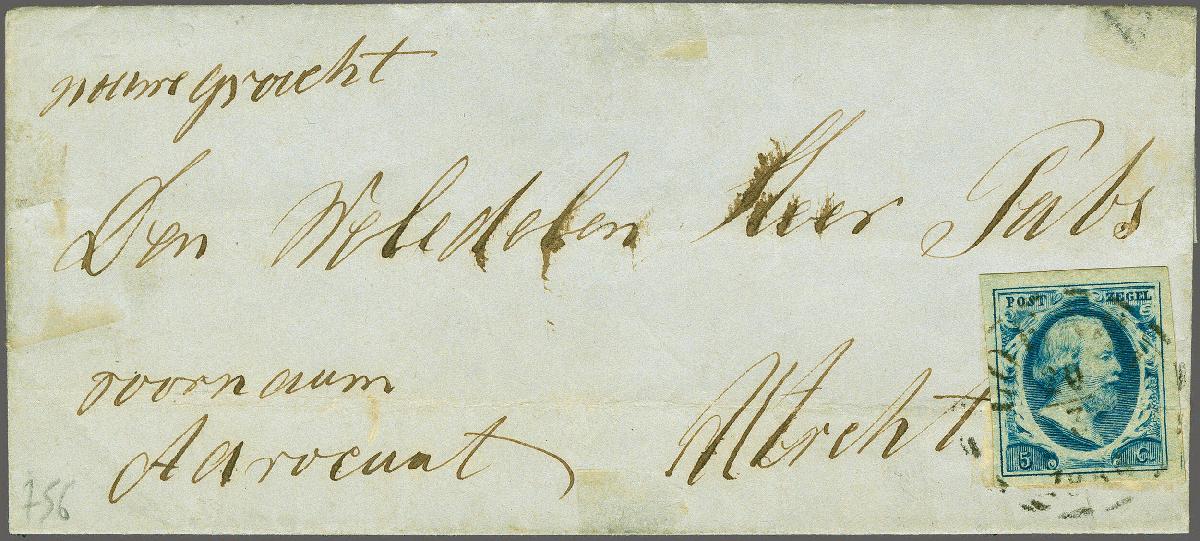 nouwe gracht
Den Weledelen Heer Pabs
voornaam
Advocaat Utrcht
POST ZEGEL
5 C
756